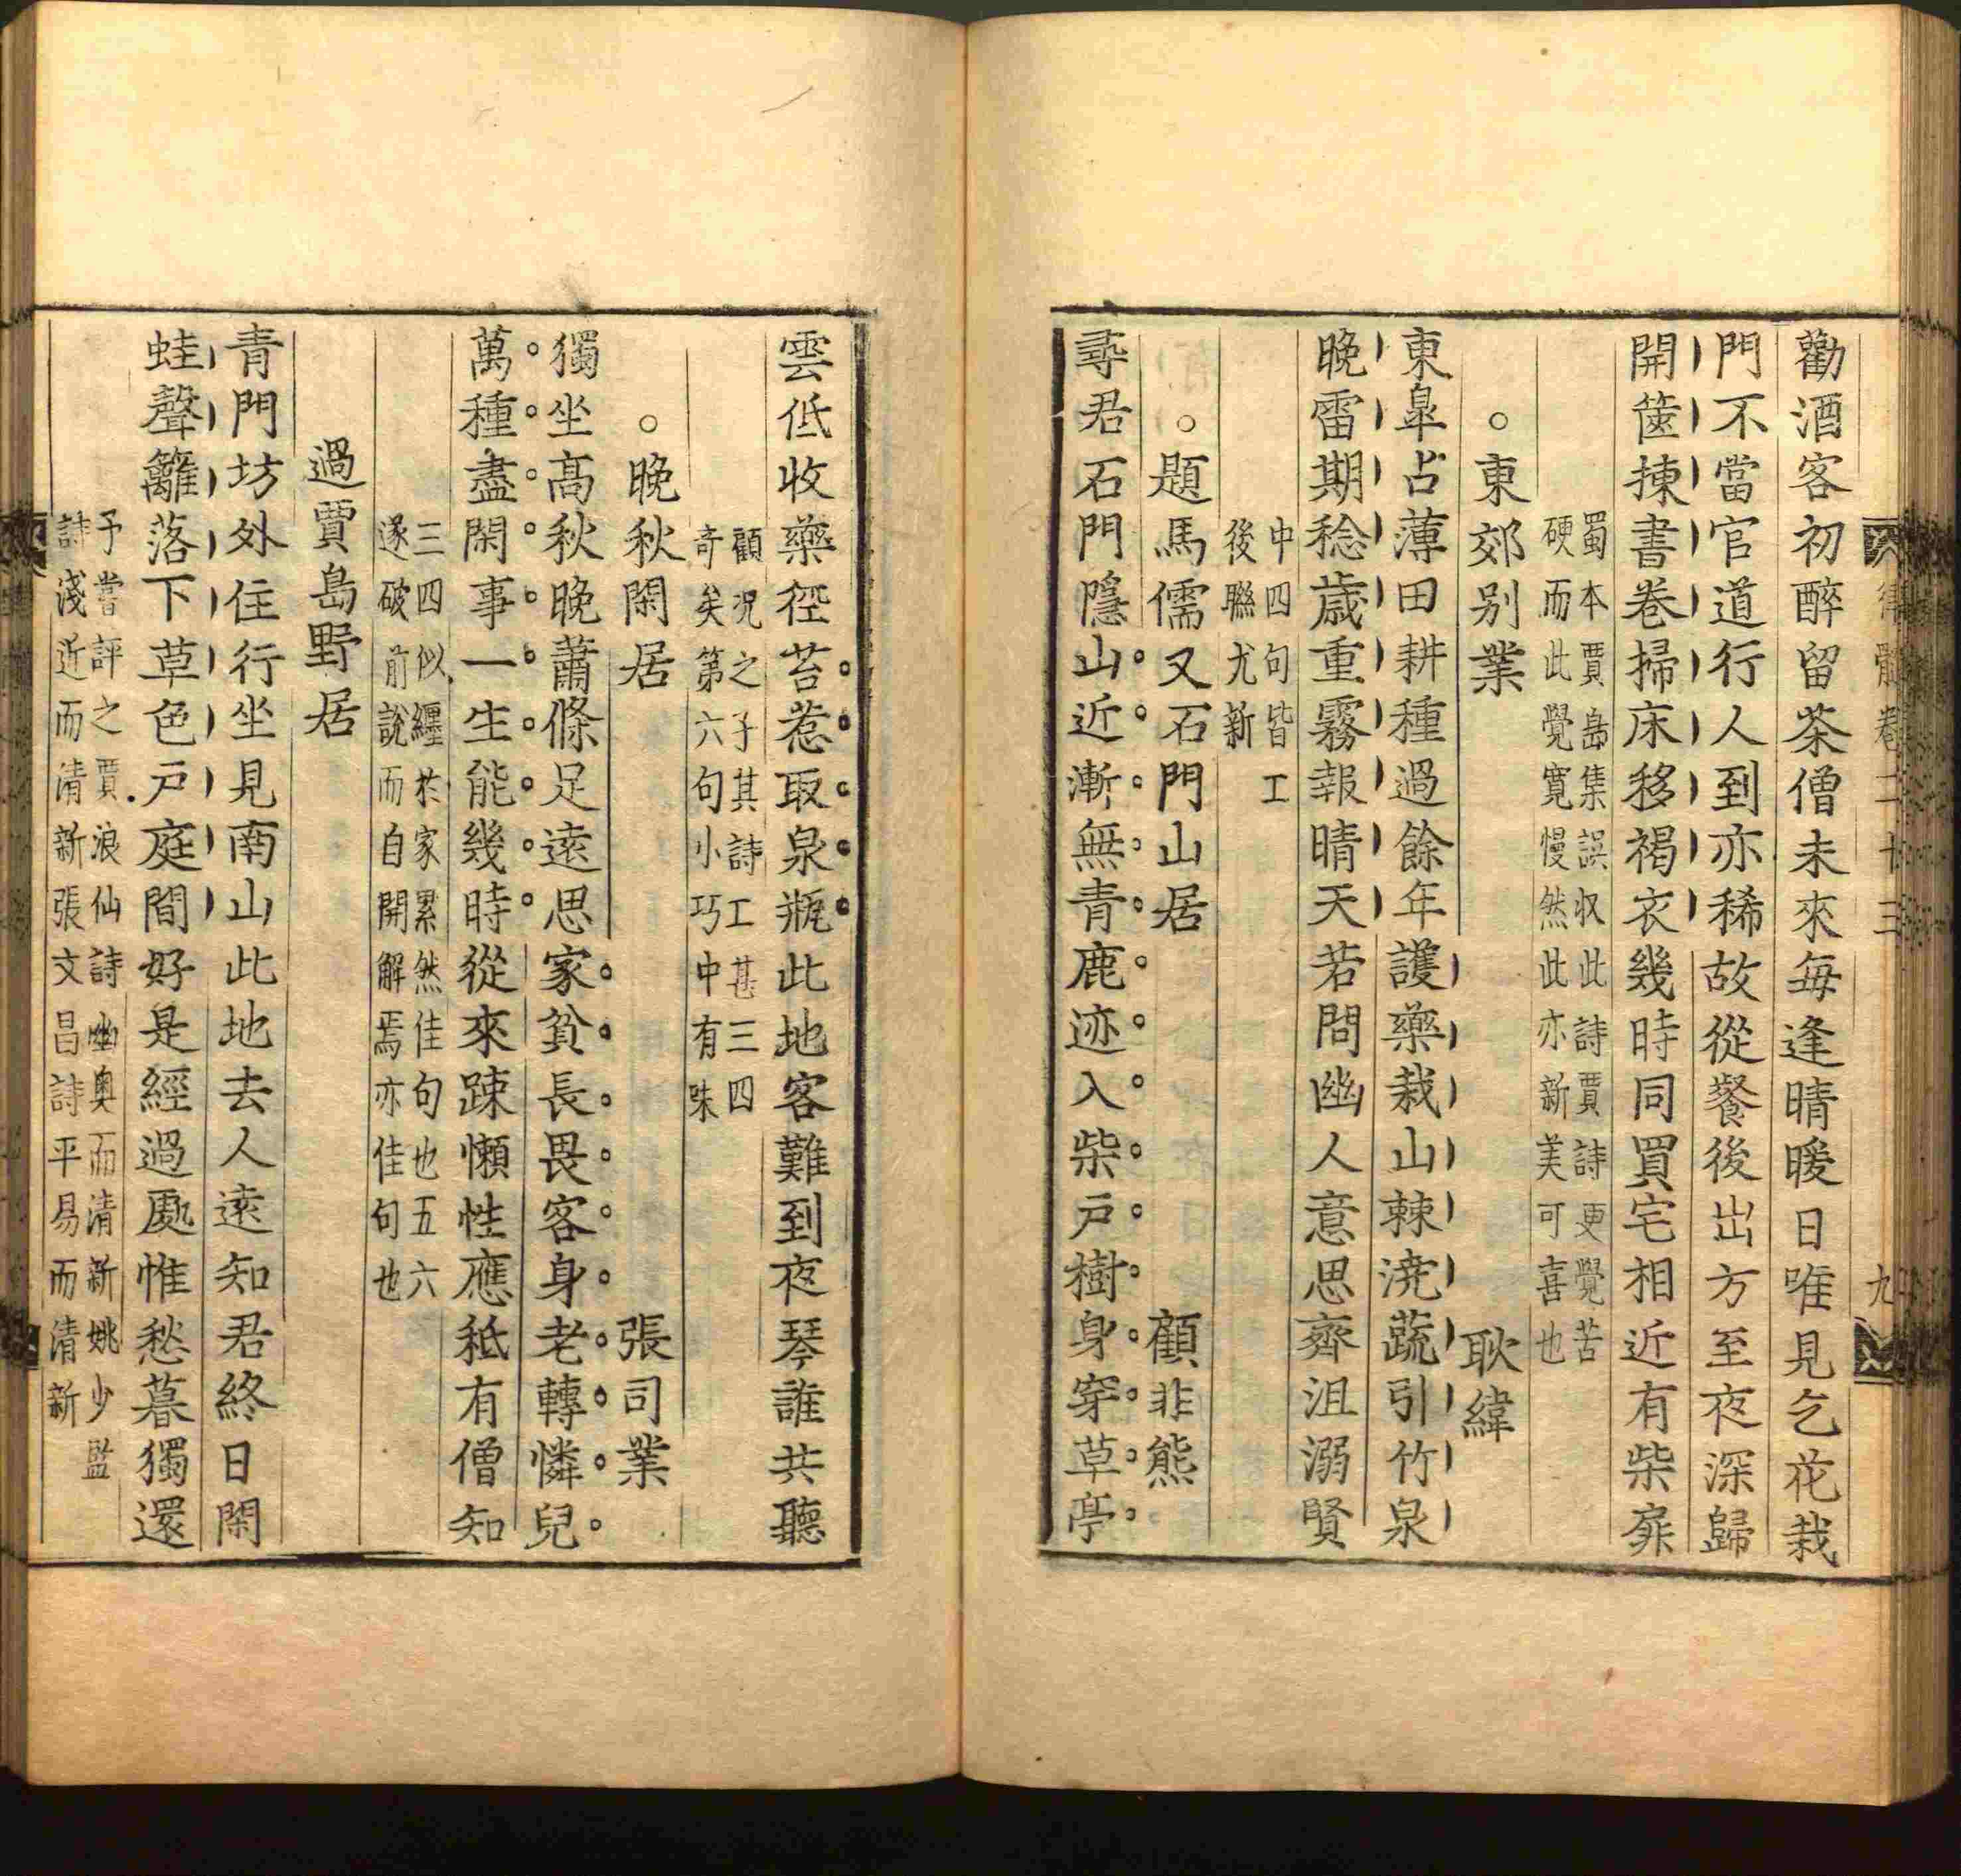 勸酒客初醉留茶僧未來每逢晴暖日唯見乞花栽
門不當官道行人到亦稀故從餐後出方至夜深歸
開篋揀書卷掃床移褐衣幾時同買宅相近有柴扉
蜀本賈島集誤収此詩賈詩更覺苦
硬而此覺寬慢然此亦新美可喜也
○東郊别業 耿緯
東臯占薄田耕種過餘年護藥栽山棘澆蔬引竹泉
晚雷期稔歲重霧報晴天若問幽人意思齊沮溺賢
中四句皆工
後聯尤新
○題馬儒又石門山居 顧非熊
尋君石門隱山近漸無青鹿迹入柴戶樹身穿草亭
雲低收藥徑苔惹取泉瓶此地客難到夜琴誰共聽
顧況之子其詩工甚三四
奇矣第六句小巧中有味
○晚秋閑居 張司業
獨坐高秋晚蕭條足遠思家貧長畏客身老轉憐兒
萬種盡閑事一生能幾時從來踈懶性應秖有僧知
三四似纒於家累然佳句也五六
遂破前說而自開解焉亦佳句也
過賈島野居
青門坊外住行坐見南山此地去人遠知君終日閑
蛙聲籬落下草色戶庭間好是經過處惟愁暮獨還
予嘗評之賈浪仙詩幽奧而清新姚少監
詩淺近而清新張文昌詩平易而清新
律髓卷二十三 九